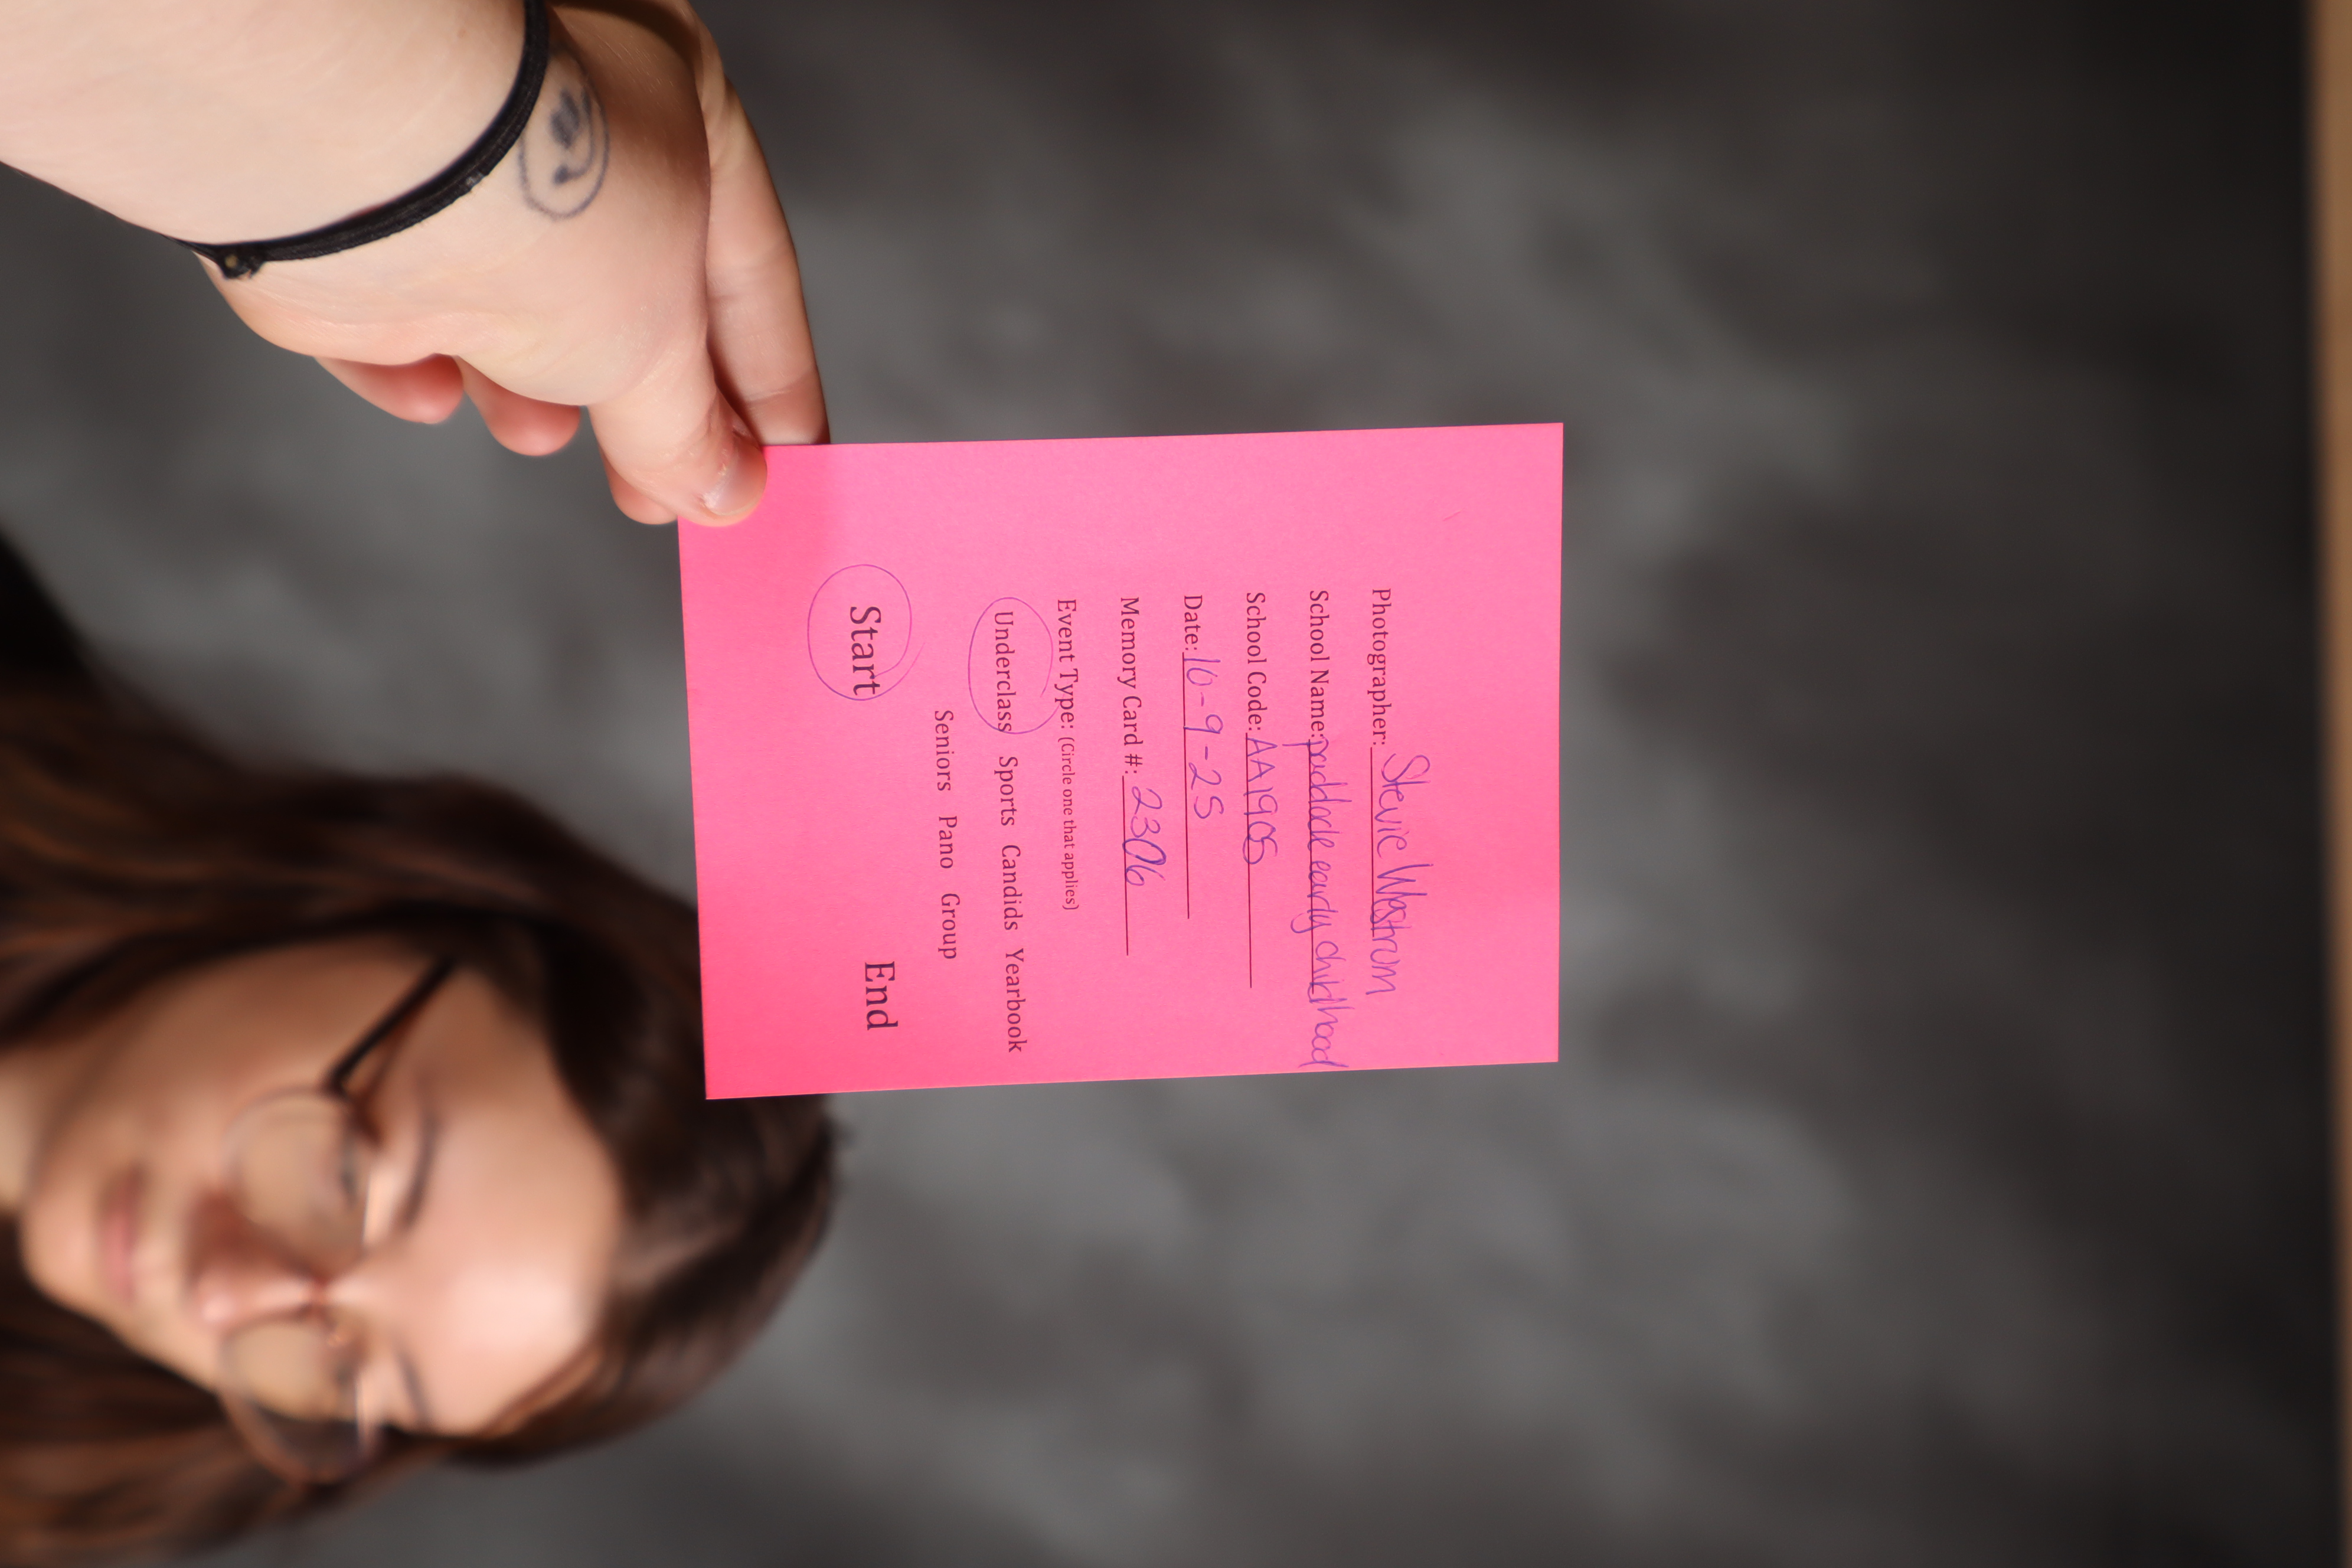 Photographer: Stevie Westrom
School Name: paddock early childhood
School Code: AA1905
Date: 10-9-25
Memory Card #: 2306
Event Type: (Circle one that applies)
Underclass Sports Candids Yearbook
Seniors Pano Group
Start End